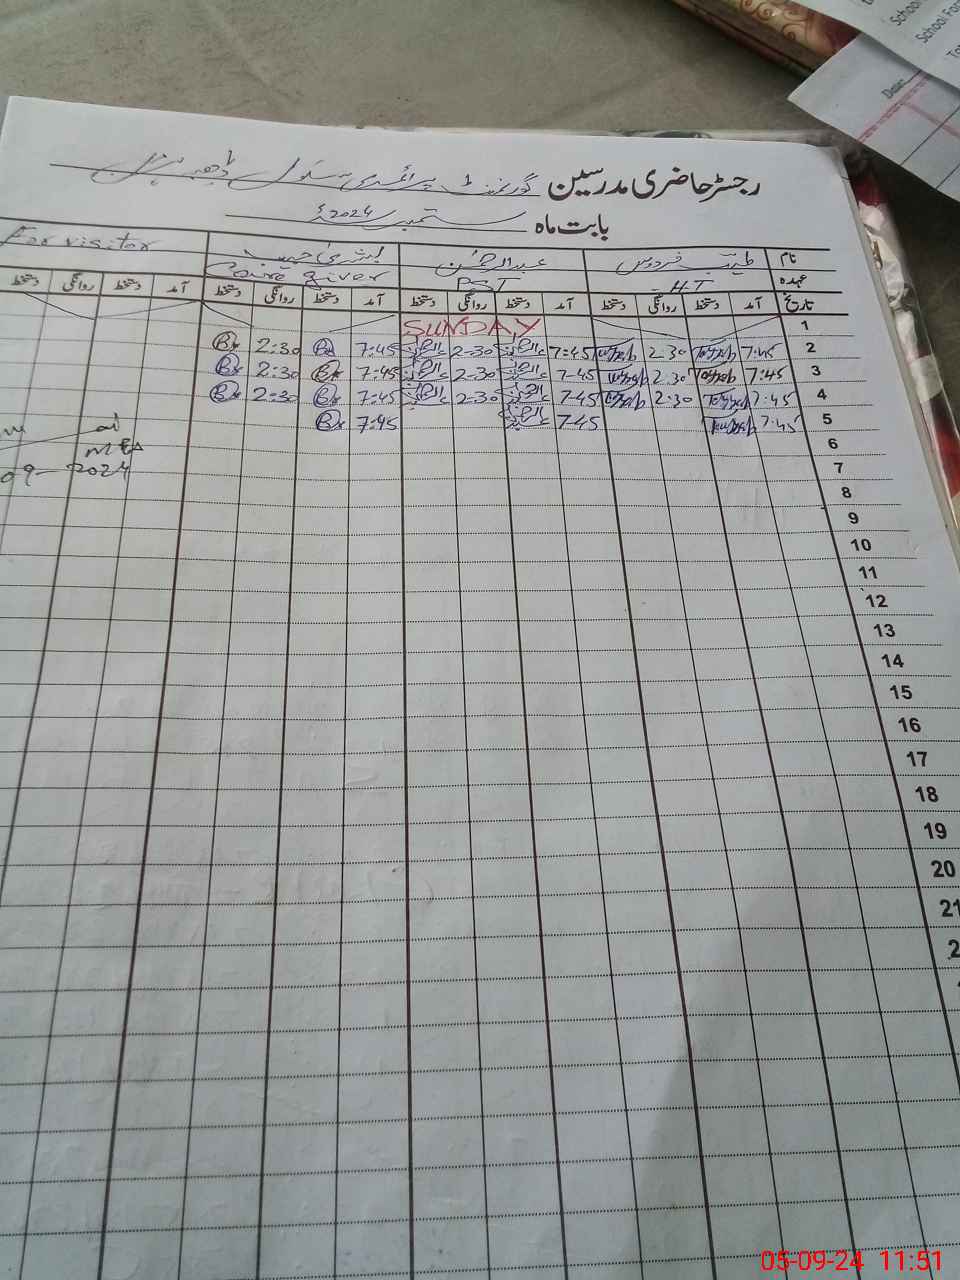 School
School For
Date:
رجسٹر حاضری مدرسین گورنمنٹ پرائمری سکول
بابت ماہ ستمبر 2024ء
نام طیبہ فردوس عبدالرحمٰن بشریٰ حبیب For visitor
عہدہ H.T PST Care giver
تاریخ آمد دستخط روانگی دستخط آمد دستخط روانگی دستخط آمد دستخط روانگی دستخط آمد دستخط روانگی دستخط
1 SUNDAY
2 7:45 Tayyab 2:30 Tayyab 7:45 2-30 7:45 2:30
3 7:45 Tayyab 2:30 Tayyab 7-45 2-30 7:45 2:30
4 7:45 Tayyab 2:30 Tayyab 7-45 2-30 7:45 2:30
5 7:45 Tayyab 7-45 7:45
6
MEA
7
09-2024
8
9
10
11
12
13
14
15
16
17
18
19
20
21
05-09-24 11:51